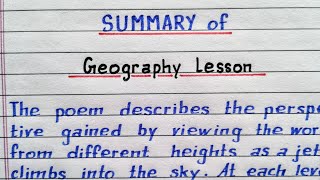 SUMMARY of
Geography Lesson
The poem describes the perspec
tive gained by viewing the wor
from different heights as a jet
climbs into the sky. At each leve